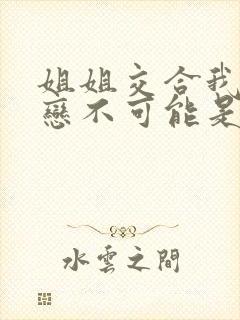 姐姐交合我
戀不可能是
水雲之間